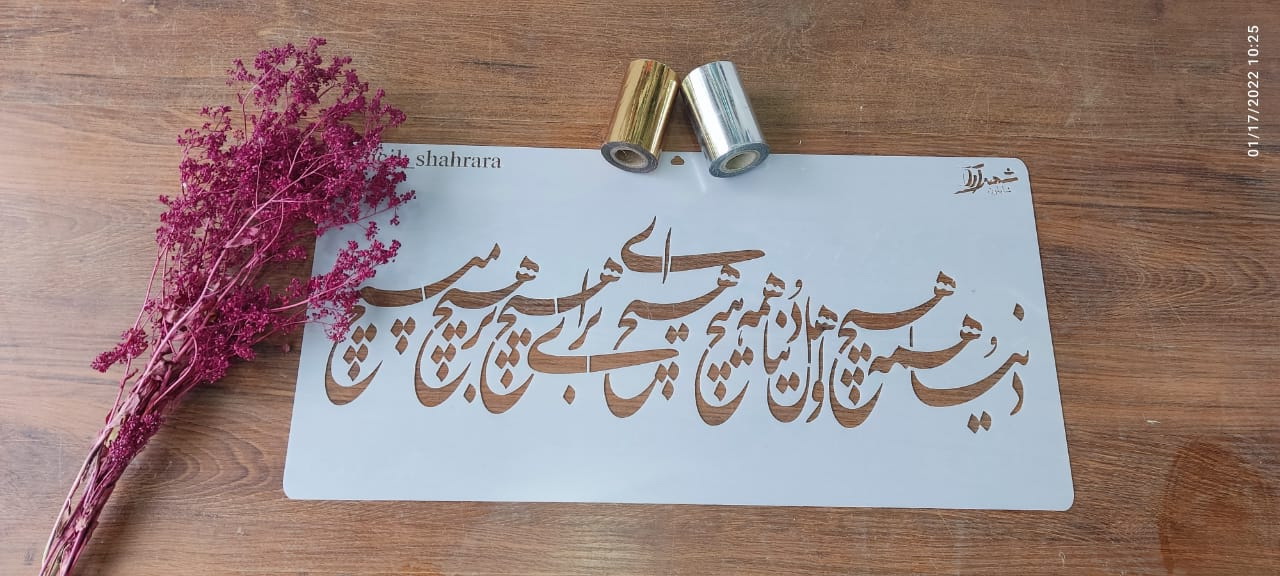 _shahrara
شهرآرا
دنیا همه هیچ و اهل دنیا همه هیچ
ای هیچ برای هیچ بر هیچ مپیچ
01/17/2022 10:25